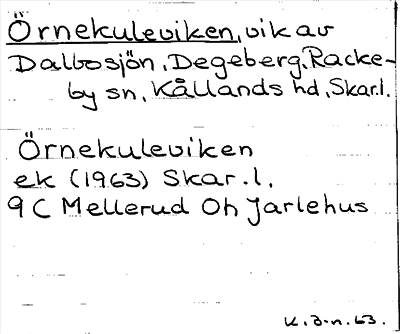 Örnekuleviken, vik av
Dalbosjön, Degeberg, Racke-
by sn, Kållands hd, Skar.l.
Örnekuleviken
ek (1963) Skar.l.
9 C Mellerud Oh Jarlehus
K.G-n.63.